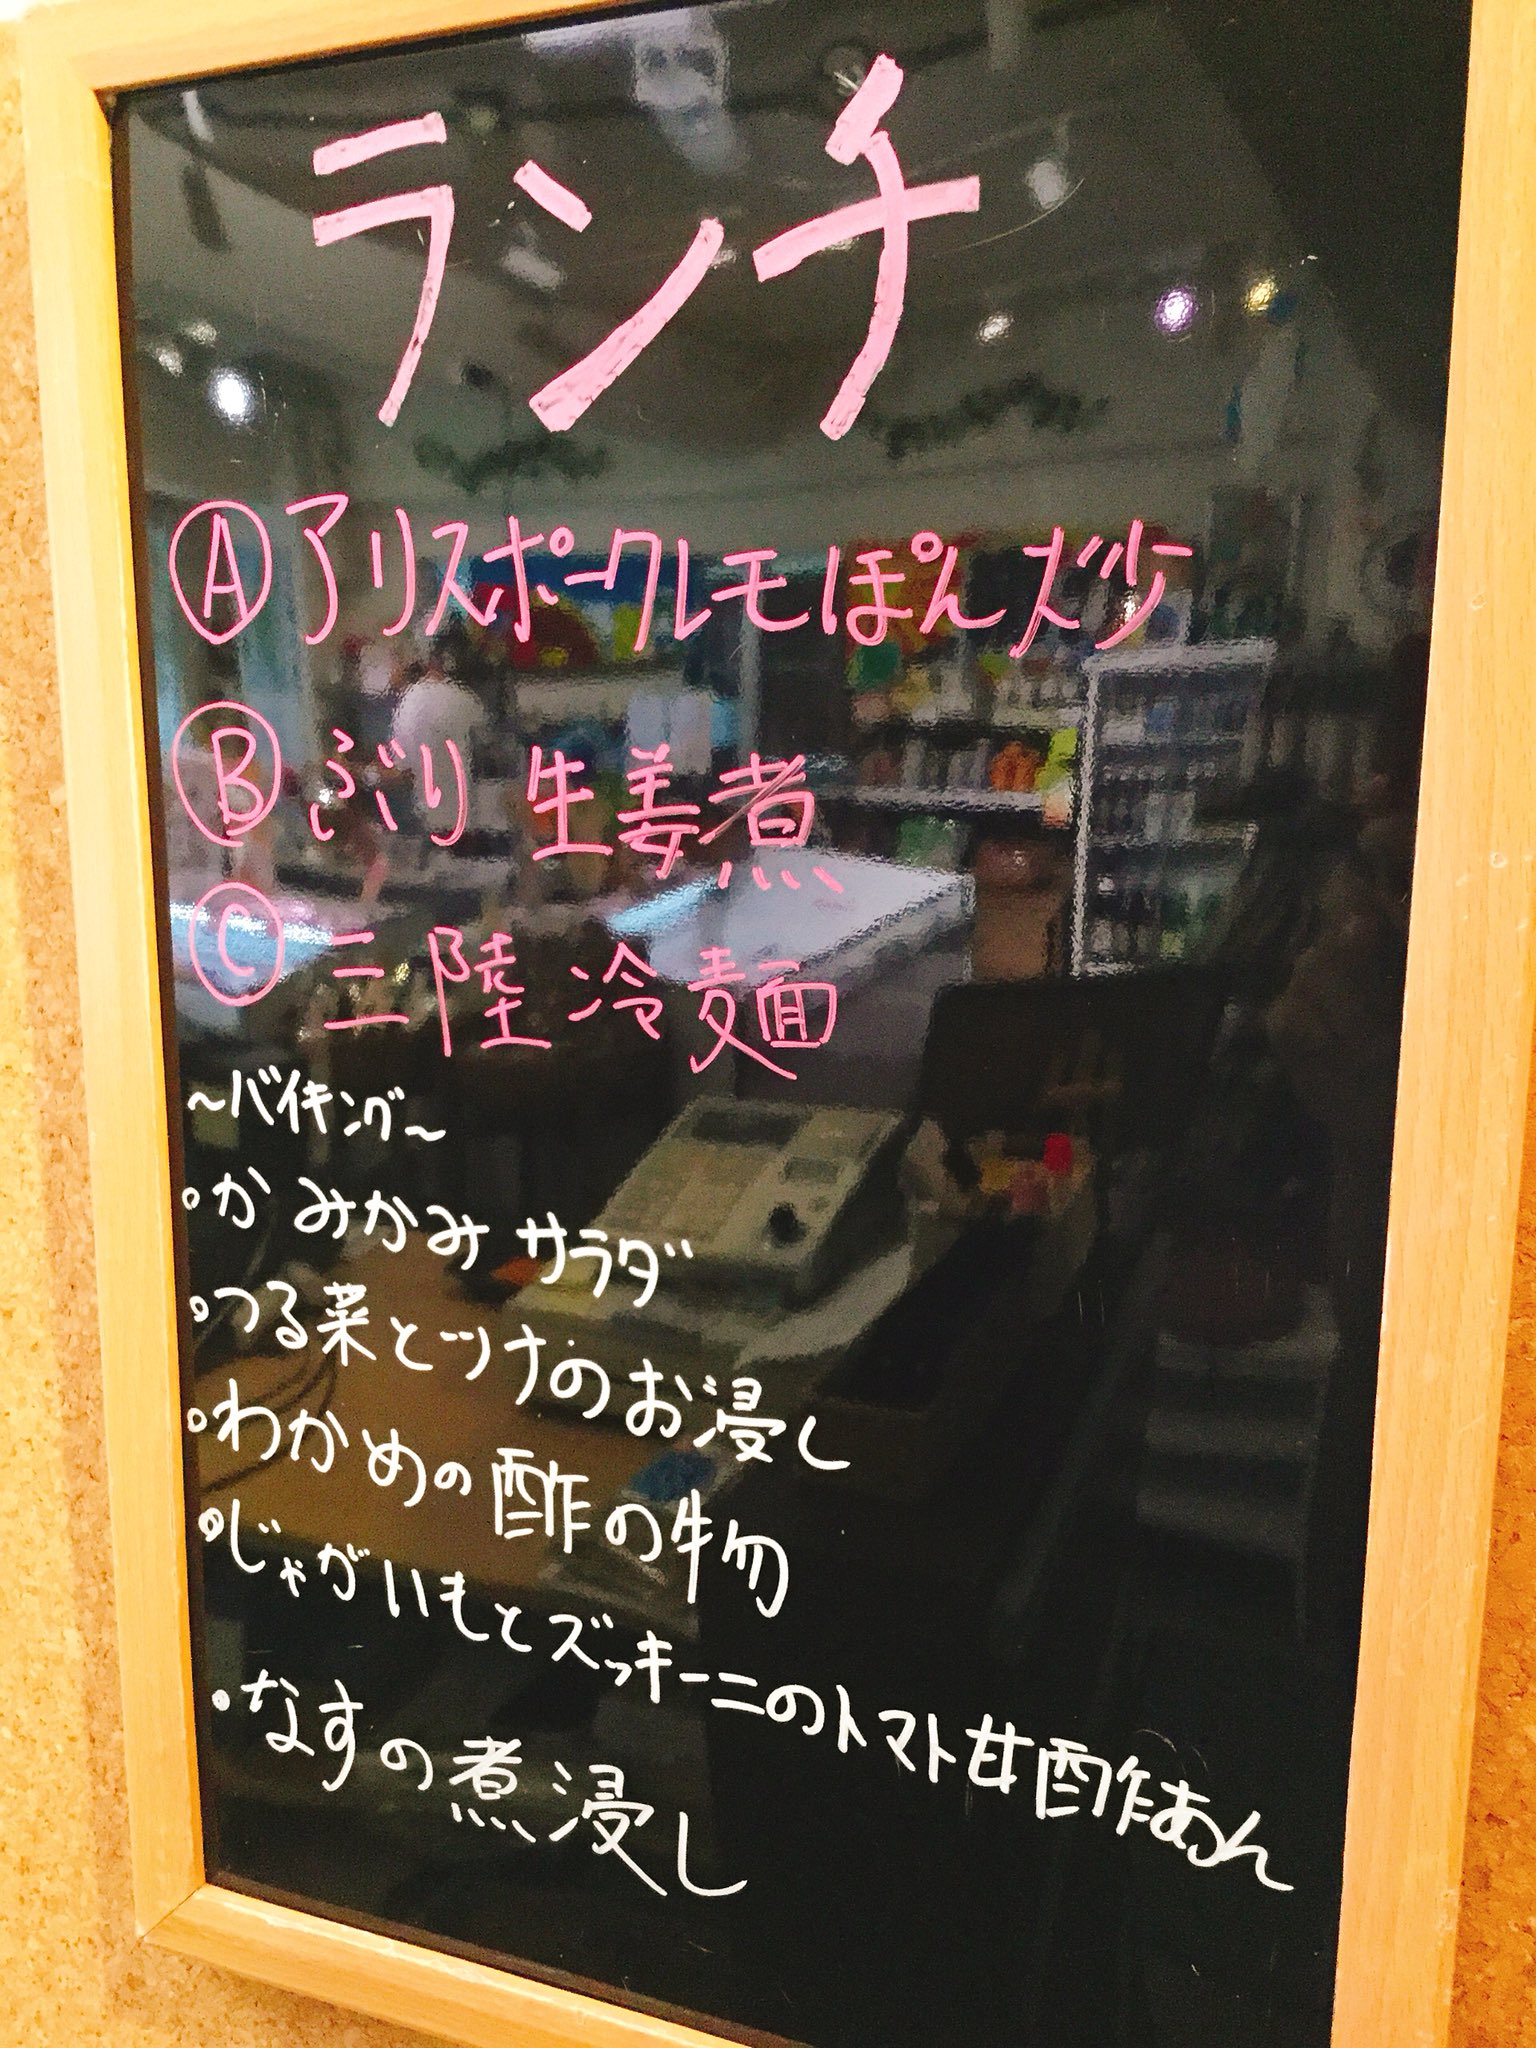 ランチ
Ⓐアリスポークレモぽん炒
Ⓑ ぶり 生姜煮
Ⓒ 三陸 冷麺
～バイキング～
・かみかみサラダ
・つる菜とツナのお浸し
・わかめの酢の物
・じゃがいもとズッキーニのトマト甘酢あん
・なすの煮浸し